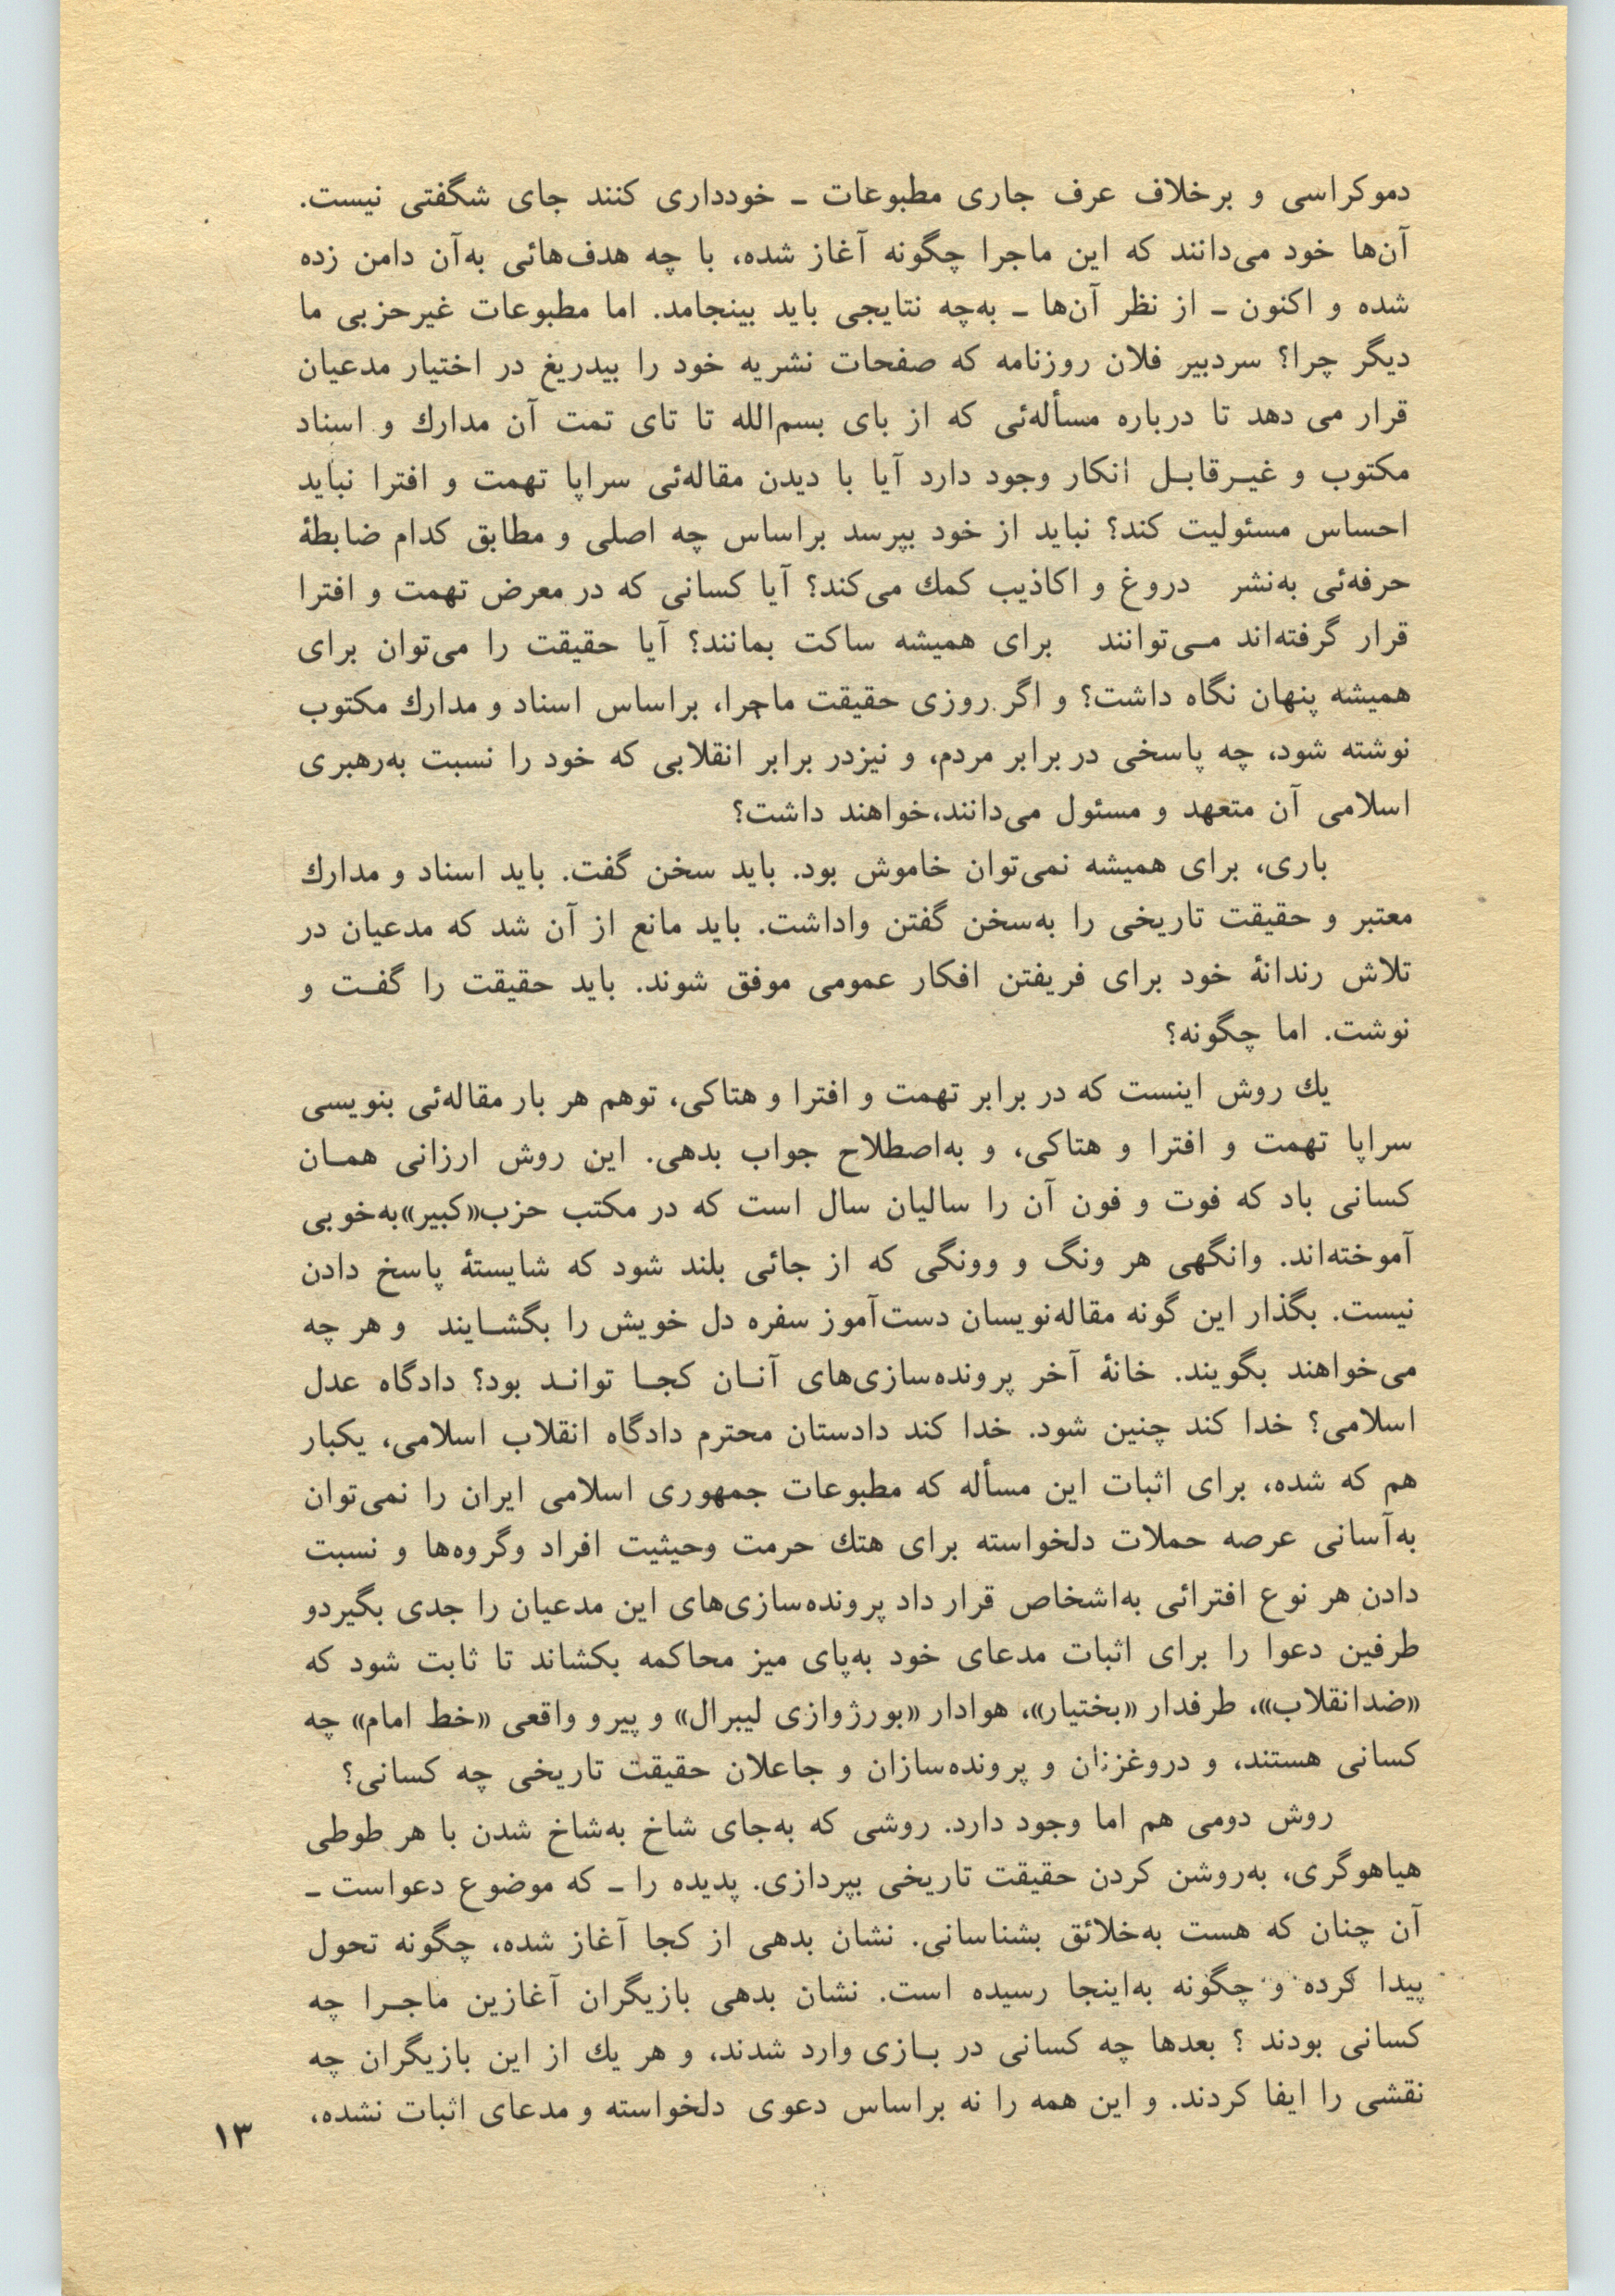 دموکراسی و برخلاف عرف جاری مطبوعات ـ خودداری کنند جای شگفتی نیست.
آن‌ها خود می‌دانند که این ماجرا چگونه آغاز شده، با چه هدف‌هائی به‌آن دامن زده
شده و اکنون ـ از نظر آن‌ها ـ به‌چه نتایجی باید بینجامد. اما مطبوعات غیرحزبی ما
دیگر چرا؟ سردبیر فلان روزنامه که صفحات نشریه خود را بیدریغ در اختیار مدعیان
قرار می دهد تا درباره مسأله‌ئی که از بای بسم‌الله تا تای تمت آن مدارك و اسناد
مکتوب و غیـرقابـل انکار وجود دارد آیا با دیدن مقاله‌ئی سراپا تهمت و افترا نباید
احساس مسئولیت کند؟ نباید از خود بپرسد براساس چه اصلی و مطابق کدام ضابطهٔ
حرفه‌ئی به‌نشر دروغ و اکاذیب کمك می‌کند؟ آیا کسانی که در معرض تهمت و افترا
قرار گرفته‌اند مـی‌توانند برای همیشه ساکت بمانند؟ آیا حقیقت را می‌توان برای
همیشه پنهان نگاه داشت؟ و اگر روزی حقیقت ماجرا، براساس اسناد و مدارك مکتوب
نوشته شود، چه پاسخی در برابر مردم، و نیزدر برابر انقلابی که خود را نسبت به‌رهبری
اسلامی آن متعهد و مسئول می‌دانند،خواهند داشت؟
باری، برای همیشه نمی‌توان خاموش بود. باید سخن گفت. باید اسناد و مدارك
معتبر و حقیقت تاریخی را به‌سخن گفتن واداشت. باید مانع از آن شد که مدعیان در
تلاش رندانهٔ خود برای فریفتن افکار عمومی موفق شوند. باید حقیقت را گفـت و
نوشت. اما چگونه؟
یك روش اینست که در برابر تهمت و افترا و هتاکی، توهم هر بار مقاله‌ئی بنویسی
سراپا تهمت و افترا و هتاکی، و به‌اصطلاح جواب بدهی. این روش ارزانی همـان
کسانی باد که فوت و فون آن را سالیان سال است که در مکتب حزب«کبیر»به‌خوبی
آموخته‌اند. وانگهی هر ونگ و وونگی که از جائی بلند شود که شایستهٔ پاسخ دادن
نیست. بگذار این گونه مقاله‌نویسان دست‌آموز سفره دل خویش را بگشـایند و هر چه
می‌خواهند بگویند. خانهٔ آخر پرونده‌سازی‌های آنـان کجـا توانـد بود؟ دادگاه عدل
اسلامی؟ خدا کند چنین شود. خدا کند دادستان محترم دادگاه انقلاب اسلامی، یکبار
هم که شده، برای اثبات این مسأله که مطبوعات جمهوری اسلامی ایران را نمی‌توان
به‌آسانی عرصه حملات دلخواسته برای هتك حرمت وحیثیت افراد وگروه‌ها و نسبت
دادن هر نوع افترائی به‌اشخاص قرار داد پرونده‌سازی‌های این مدعیان را جدی بگیردو
طرفین دعوا را برای اثبات مدعای خود به‌پای میز محاکمه بکشاند تا ثابت شود که
«ضدانقلاب»، طرفدار «بختیار»، هوادار «بورژوازی لیبرال» و پیرو واقعی «خط امام» چه
کسانی هستند، و دروغزنان و پرونده‌سازان و جاعلان حقیقت تاریخی چه کسانی؟
روش دومی هم اما وجود دارد. روشی که به‌جای شاخ به‌شاخ شدن با هر طوطی
هیاهوگری، به‌روشن کردن حقیقت تاریخی بپردازی. پدیده را ـ که موضوع دعواست ـ
آن چنان که هست به‌خلائق بشناسانی. نشان بدهی از کجا آغاز شده، چگونه تحول
پیدا کرده و چگونه به‌اینجا رسیده است. نشان بدهی بازیگران آغازین ماجـرا چه
کسانی بودند ؟ بعدها چه کسانی در بـازی وارد شدند، و هر یك از این بازیگران چه
نقشی را ایفا کردند. و این همه را نه براساس دعوی دلخواسته و مدعای اثبات نشده،
۱۳